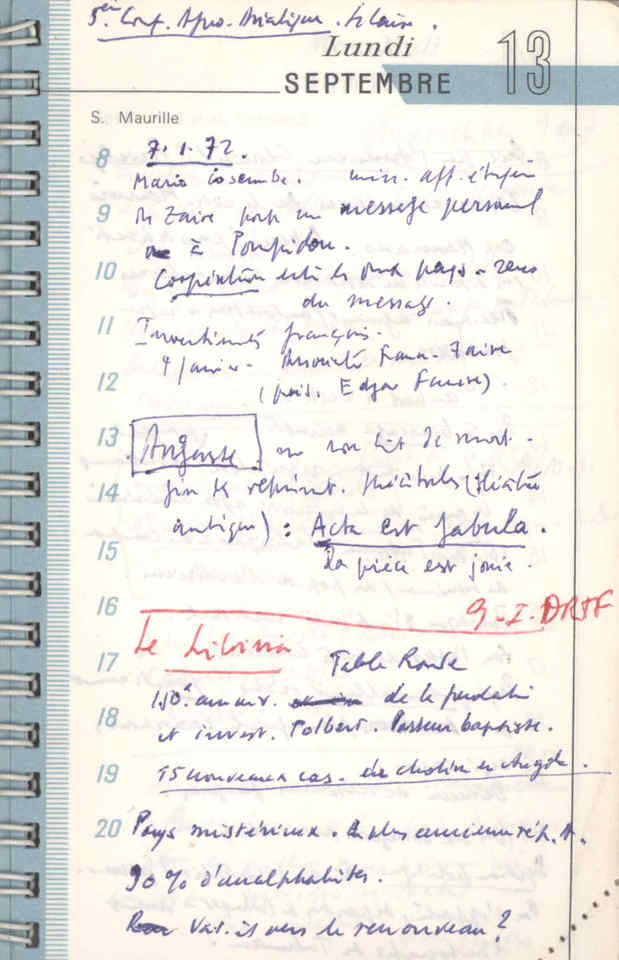 5ème Conf. Afro-Asiatique. Le Caire.
Lundi
SEPTEMBRE 13
S. Maurille
8 7.1.72.
Mario Cosembe. min. aff. étrg
9 du Zaïre porte un message personnel
à Pompidou.
10 Coopération entre les deux pays - sens
du message.
11 Investiments français.
4 janvier. Associatº Franco-Zaire
12 (prés. Edgar Faure).
13 Auguste. sur son lit de mort.
14 fin de représent. théâtrales (théâtre
antique) : Acta est fabula.
15 La pièce est jouée.
16 9-I. DRTF
17 Le Libéria Table Ronde
150è anniv. de la fondatº
18 et invest. Tolbert. Pasteur baptiste.
19 15 nouveaux cas de choléra en Angola.
20 Pays mistérieux. la plus ancienne rép. A.
90 % d'analphabètes.
Va t-il vers le renouveau ?